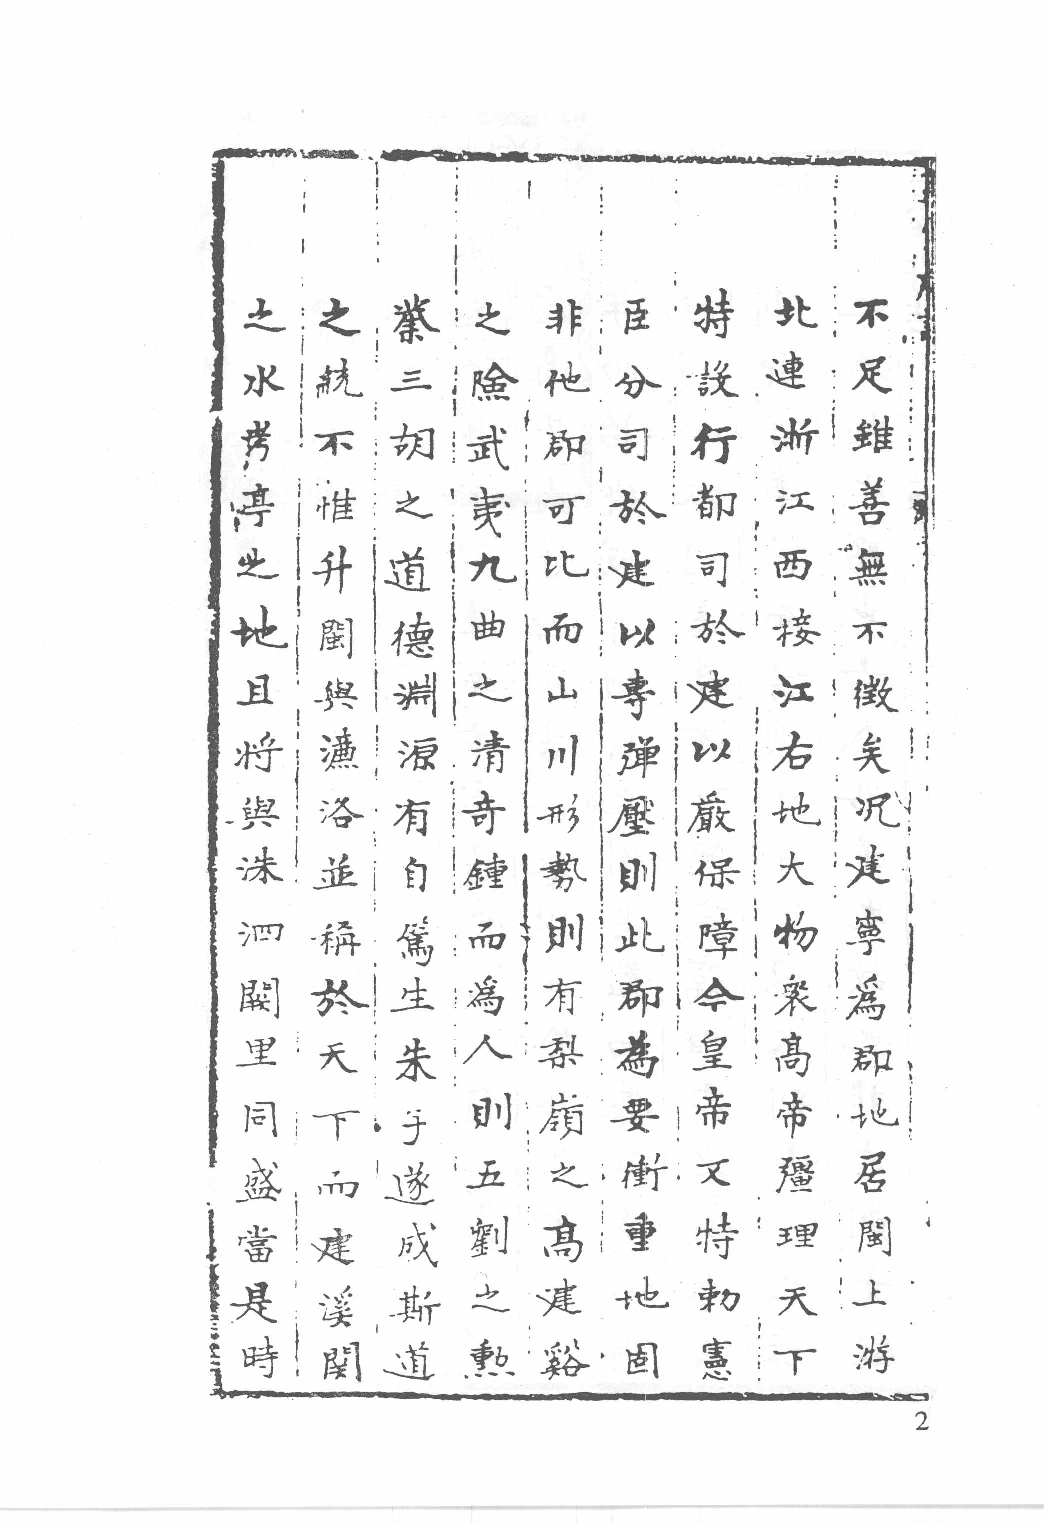 不足雖善無不徵矣况建寧爲郡地居閩上游
北連浙江西接江右地大物衆髙帝彊理天下
特設行都司於建以嚴保障今皇帝又特勅憲
臣分司於建以專彈壓則此郡為要衝重地固
非他郡可比而山川形勢則有梨嶺之髙建谿
之險武夷九曲之清奇鍾而爲人則五劉之勲
蔡三胡之道德淵源有自篤生朱子遂成斯道
之統不惟升閩與濂洛並稱於天下而建溪関
之水考亭之地且将與洙泗闕里同盛當是時
2